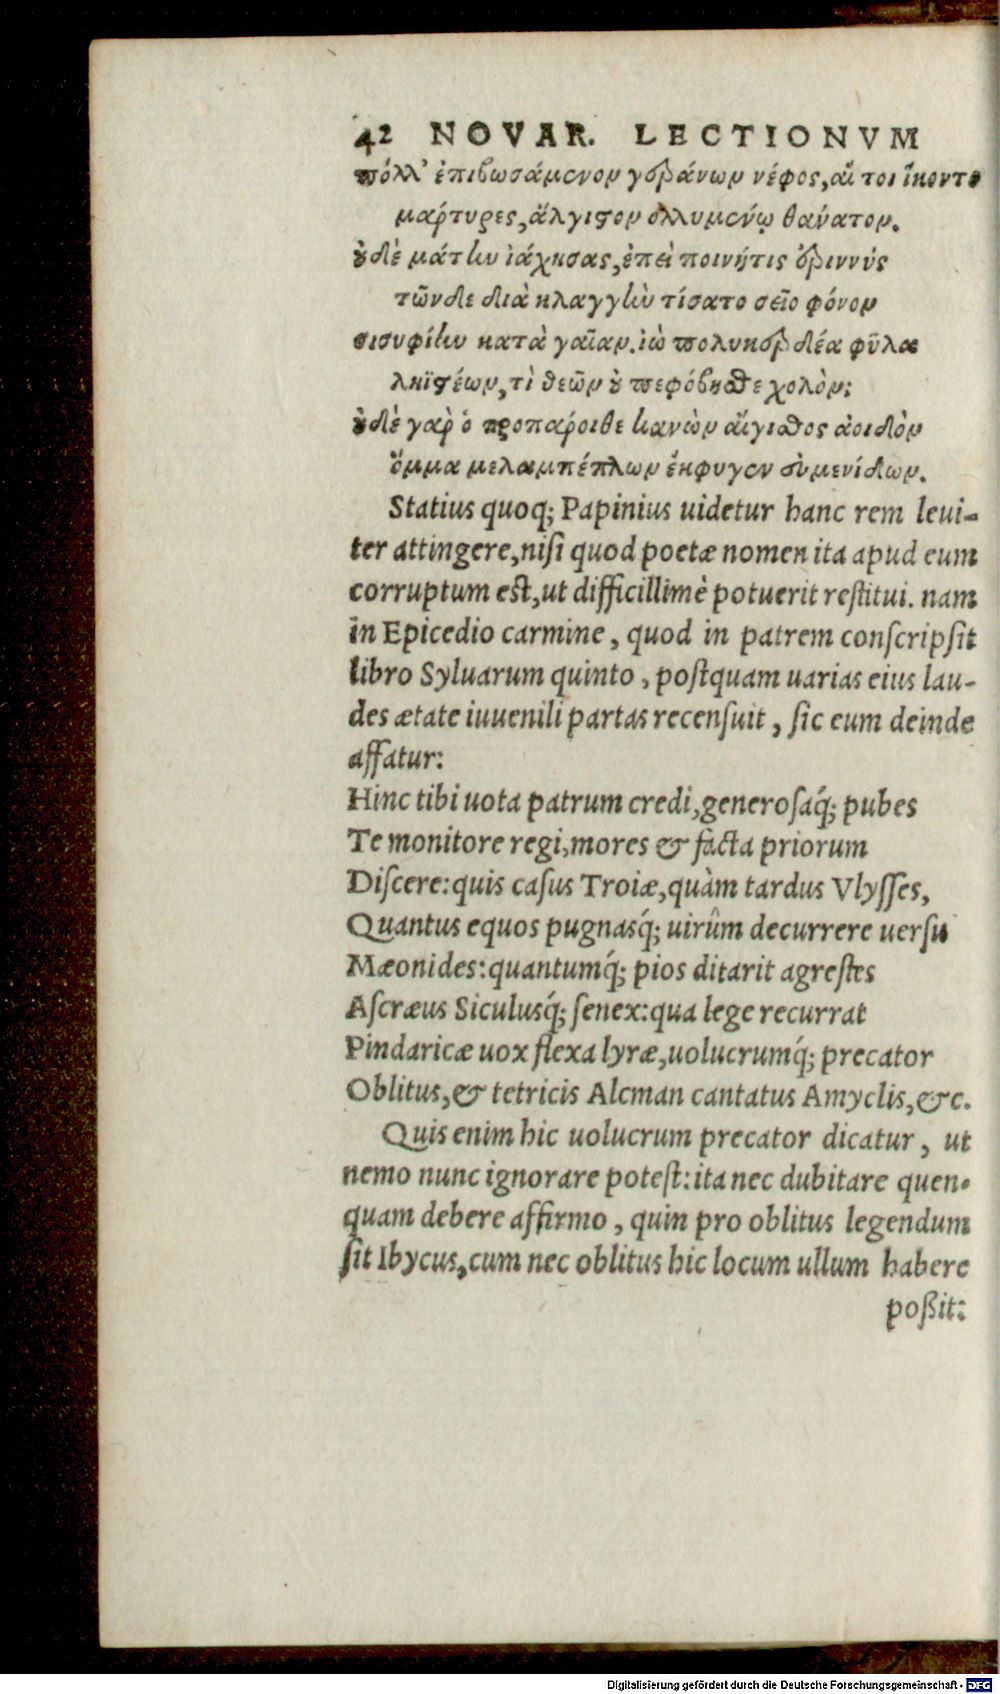 42 NOVAR. LECTIONVM
πόλλ' ἐπιβωσάμενον γεράνων νέφος, αἵ τοι ἵκοντο
μάρτυρες, ἄλγιστον ὀλλυμένῳ θάνατον.
οὐδὲ μάτην ἰάχησας, ἐπεὶ ποινήτις ἐριννὺς
τῶνδε διὰ κλαγγὴν τίσατο σεῖο φόνον
σισυφίην κατὰ γαῖαν. ἰὼ πολυκερδέα φῦλα
ληϊστέων, τὶ θεῶν οὐ πεφόβησθε χολὸν;
οὐδὲ γὰρ ὁ προπάροιθε κανὼν αἴγισθος ἀοιδὸν
ὄμμα μελαμπέπλων ἔκφυγεν εὐμενίδων.
Statius quoq; Papinius uidetur hanc rem leui-
ter attingere, niſi quod poetæ nomen ita apud eum
corruptum eſt, ut difficillimè potuerit reſtitui. nam
in Epicedio carmine, quod in patrem conſcripſit
libro Syluarum quinto, poſtquam uarias eius lau-
des ætate iuuenili partas recenſuit, ſic eum deinde
affatur:
Hinc tibi uota patrum credi, generoſaq́; pubes
Te monitore regi, mores & facta priorum
Diſcere: quis caſus Troiæ, quàm tardus Vlyſſes,
Quantus equos pugnasq́; uirûm decurrere uerſu
Mæonides: quantumq́; pios ditarit agreſtes
Aſcræus Siculusq́; ſenex: qua lege recurrat
Pindaricæ uox flexa lyræ, uolucrumq́; precator
Oblitus, & tetricis Alcman cantatus Amyclis, &c.
Quis enim hic uolucrum precator dicatur, ut
nemo nunc ignorare poteſt: ita nec dubitare quen-
quam debere affirmo, quin pro oblitus legendum
ſit Ibycus, cum nec oblitus hic locum ullum habere
poßit:
Digitalisierung gefördert durch die Deutsche Forschungsgemeinschaft - DFG